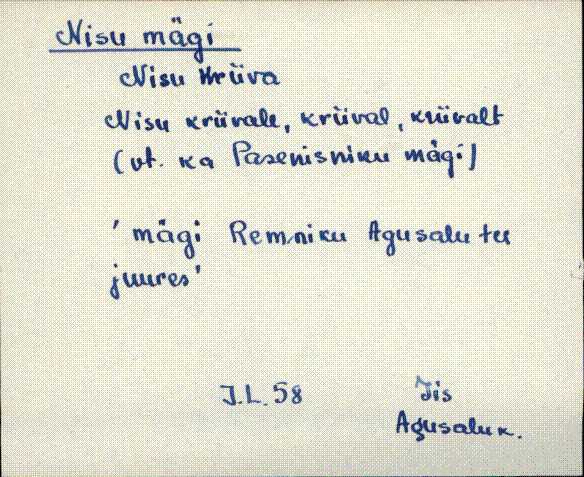 Nisu mägi
Nisu Krüva
Nisu krüvale, krüval, krüvalt
(vt. ka Pasenisniku mägi)
'mägi Remniku Agusalu tee
juures'
J.L. 58
Iis
Agusalu k.